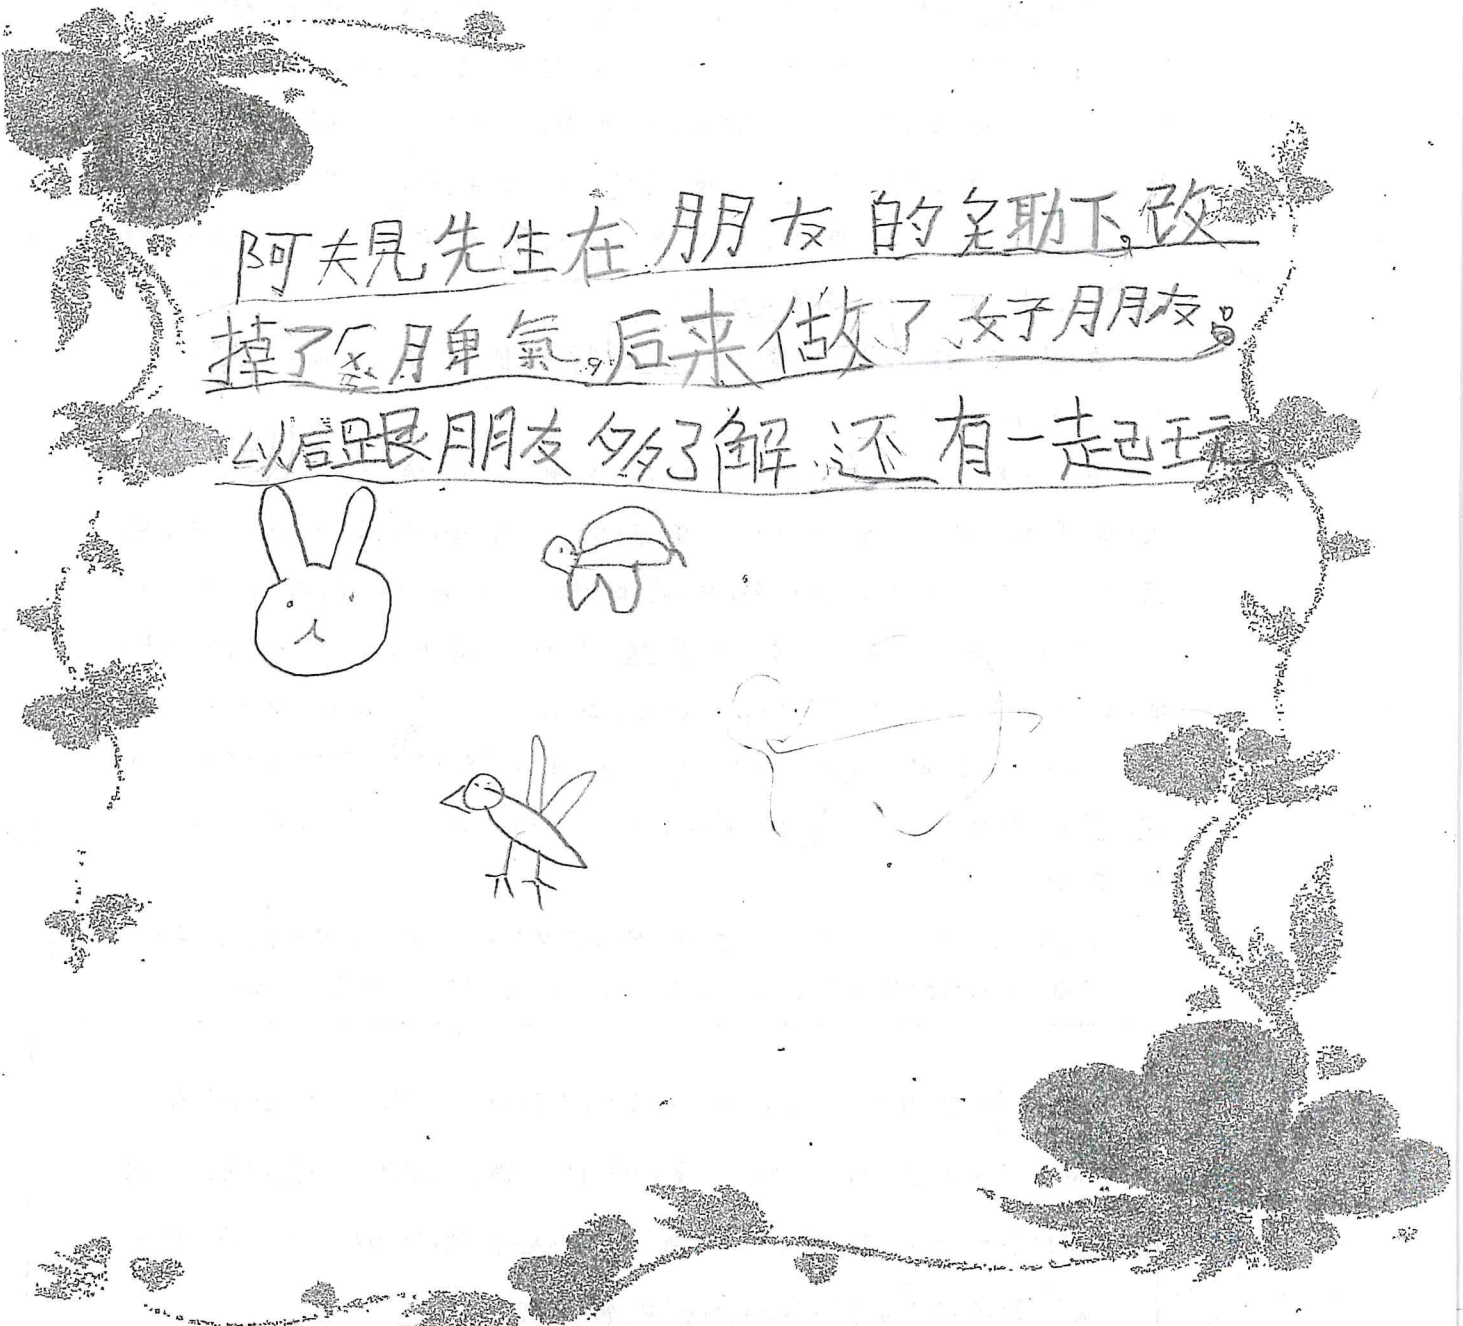 阿夫見先生在朋友的助下,改
掉了脾氣,后来做了好朋友。
以后跟朋友多了解,还有一起玩。